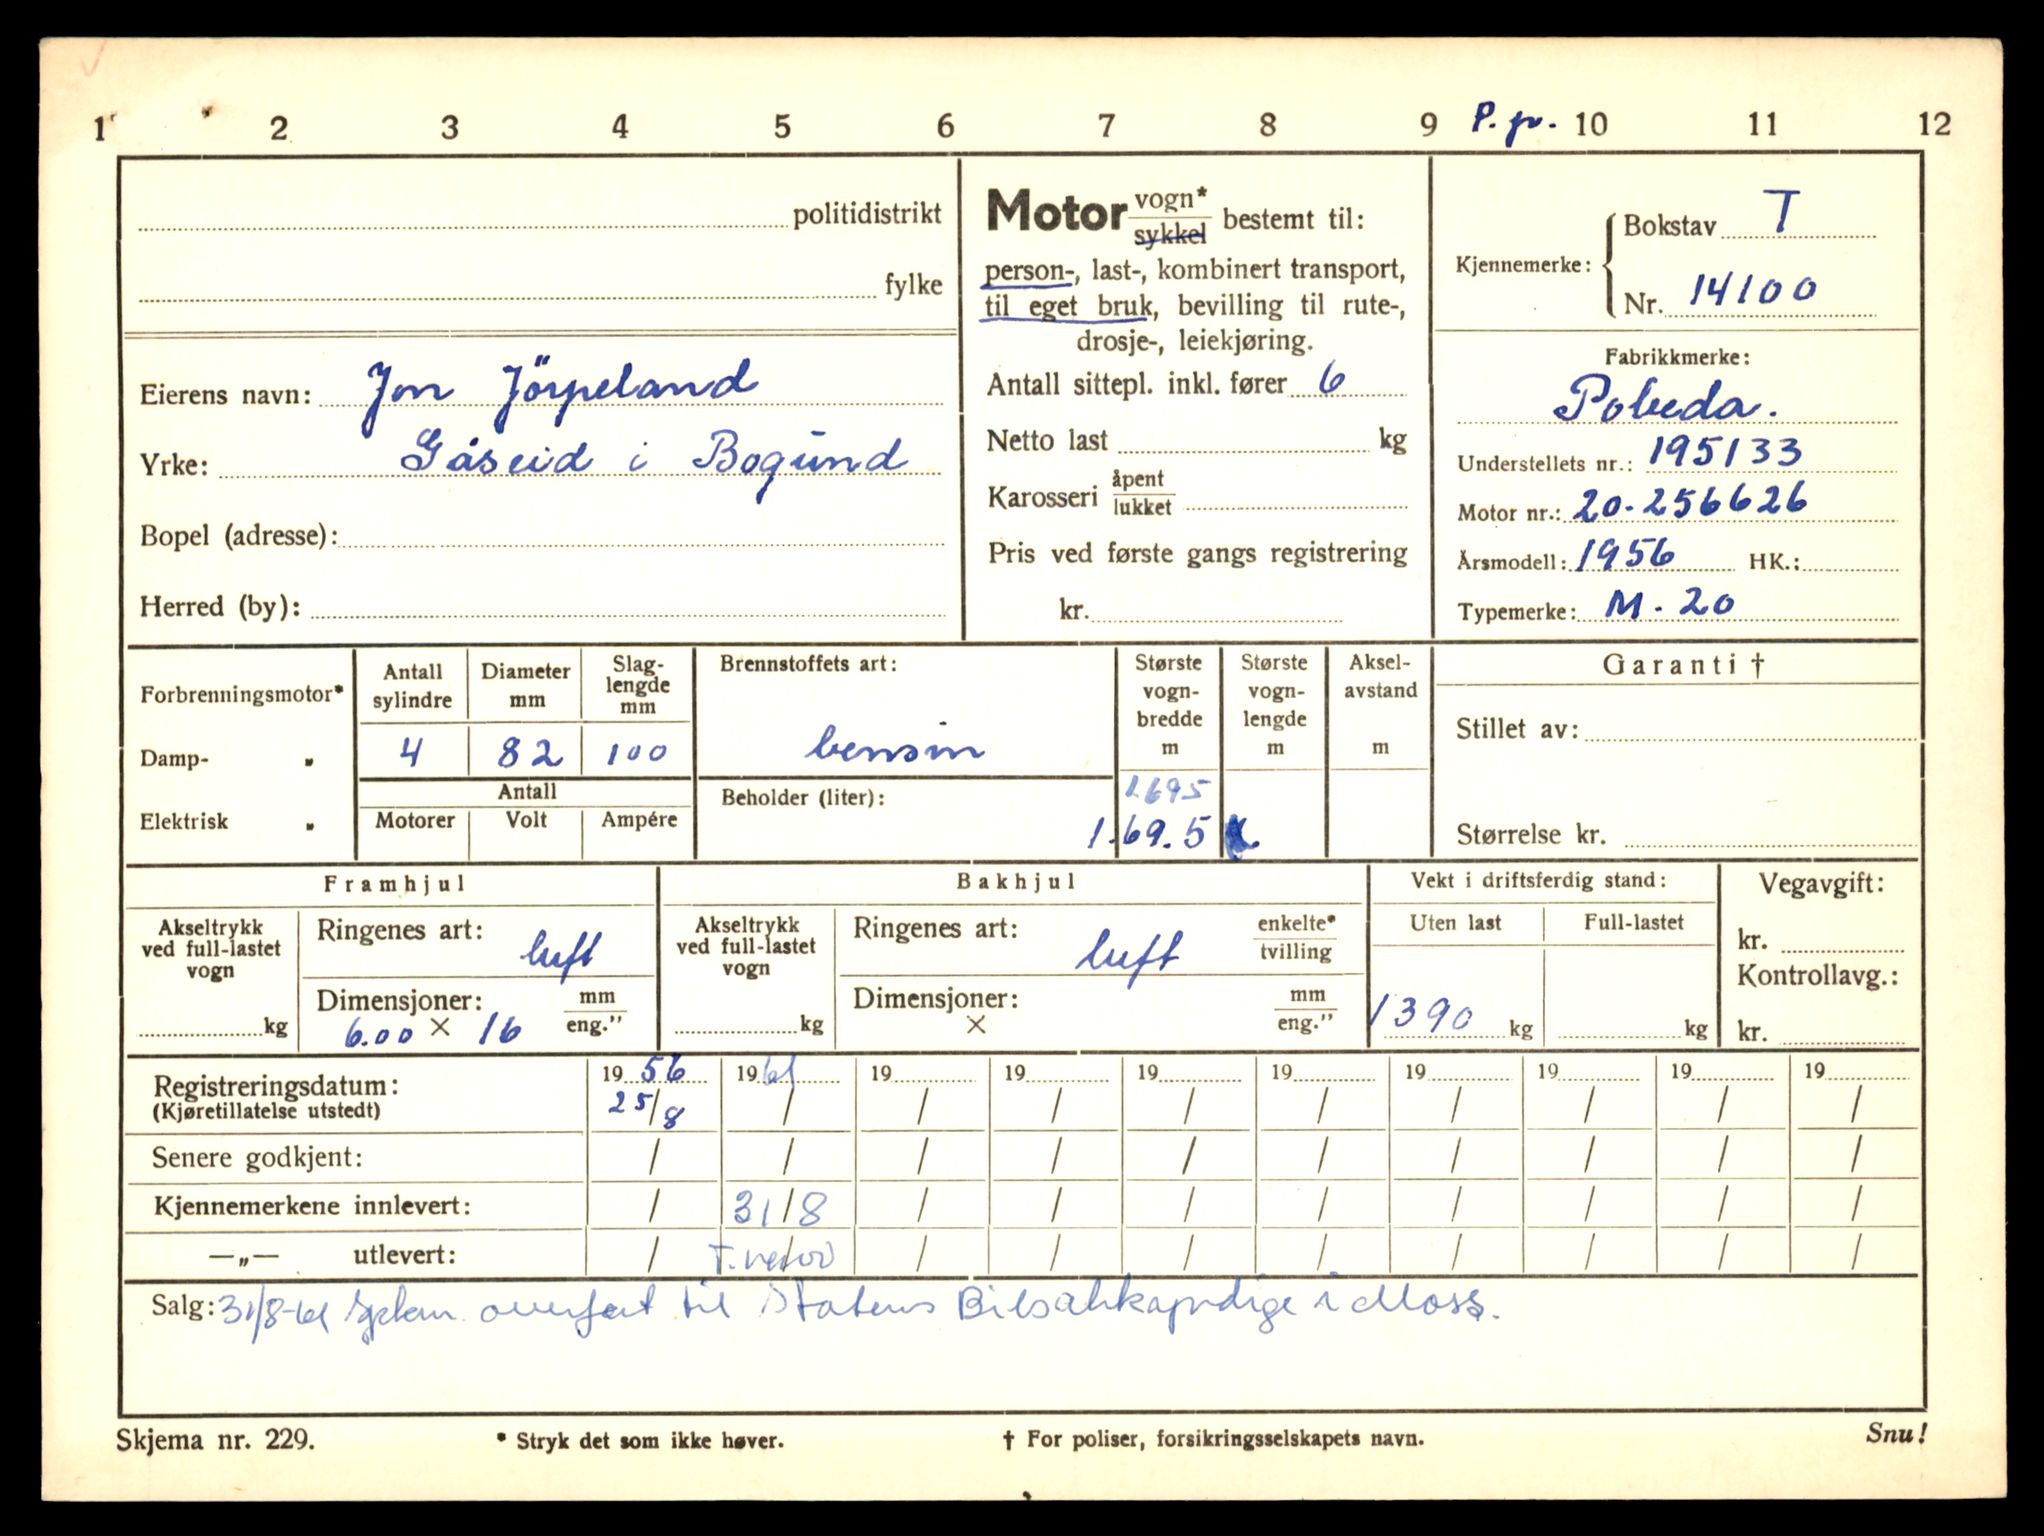 1 2 3 4 5 6 7 8 9 P. pr. 10 11 12
politidistrikt
fylke
Eierens navn: Jon Jörpeland
Yrke: Gåseid i Bogund
Bopel (adresse):
Herred (by):
Motor vogn* sykkel bestemt til:
person-, last-, kombinert transport,
til eget bruk, bevilling til rute-,
drosje-, leiekjøring.
Antall sittepl. inkl. fører 6
Netto last kg
Karosseri åpent lukket
Pris ved første gangs registrering
kr.
Kjennemerke: Bokstav T
Nr. 14100
Fabrikkmerke:
Pobeda.
Understellets nr.: 195133
Motor nr.: 20-256626
Årsmodell: 1956 HK.:
Typemerke: M-20
Forbrenningsmotor*
Damp- „
Elektrisk „
Antall sylindre
Diameter mm
Slag-
lengde
mm
4 82 100
Antall
Motorer Volt Ampére
Brennstoffets art:
bensin
Beholder (liter):
Største
vogn-
bredde
m
1.695
1.69.5
Største
vogn-
lengde
m
Aksel-
avstand
m
Garanti †
Stillet av:
Størrelse kr.
Framhjul
Akseltrykk
ved full-lastet
vogn
kg
Ringenes art: luft
Dimensjoner: mm
6.00 × 16 eng.”
Bakhjul
Akseltrykk
ved full-lastet
vogn
kg
Ringenes art: luft enkelte* tvilling
Dimensjoner: mm
× eng.”
Vekt i driftsferdig stand:
Uten last Full-lastet
1390 kg kg
Vegavgift:
kr.
Kontrollavg.:
kr.
Registreringsdatum: 19 56 19 61 19 19 19 19 19 19 19 19
(Kjøretillatelse utstedt) 25/8 / / / / / / / / /
Senere godkjent: / / / / / / / / / /
Kjennemerkene innlevert: / 31/8 / / / / / / / /
—„— utlevert: / / / / / / / / /
Salg: 31/8-61 overført til Statens Bilsakkyndige i Moss.
Skjema nr. 229. * Stryk det som ikke høver. † For poliser, forsikringsselskapets navn. Snu!